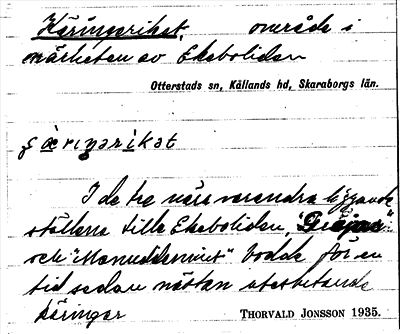 Käringariket, område i
närheten av Ekeboliden
Otterstads sn, Kållands hd, Skaraborgs län.
I de tre nära varandra liggande
ställena lille Ekeboliden,
och bodde för en
tid sedan nästan uteslutande
käringar
THORVALD JONSSON 1935.